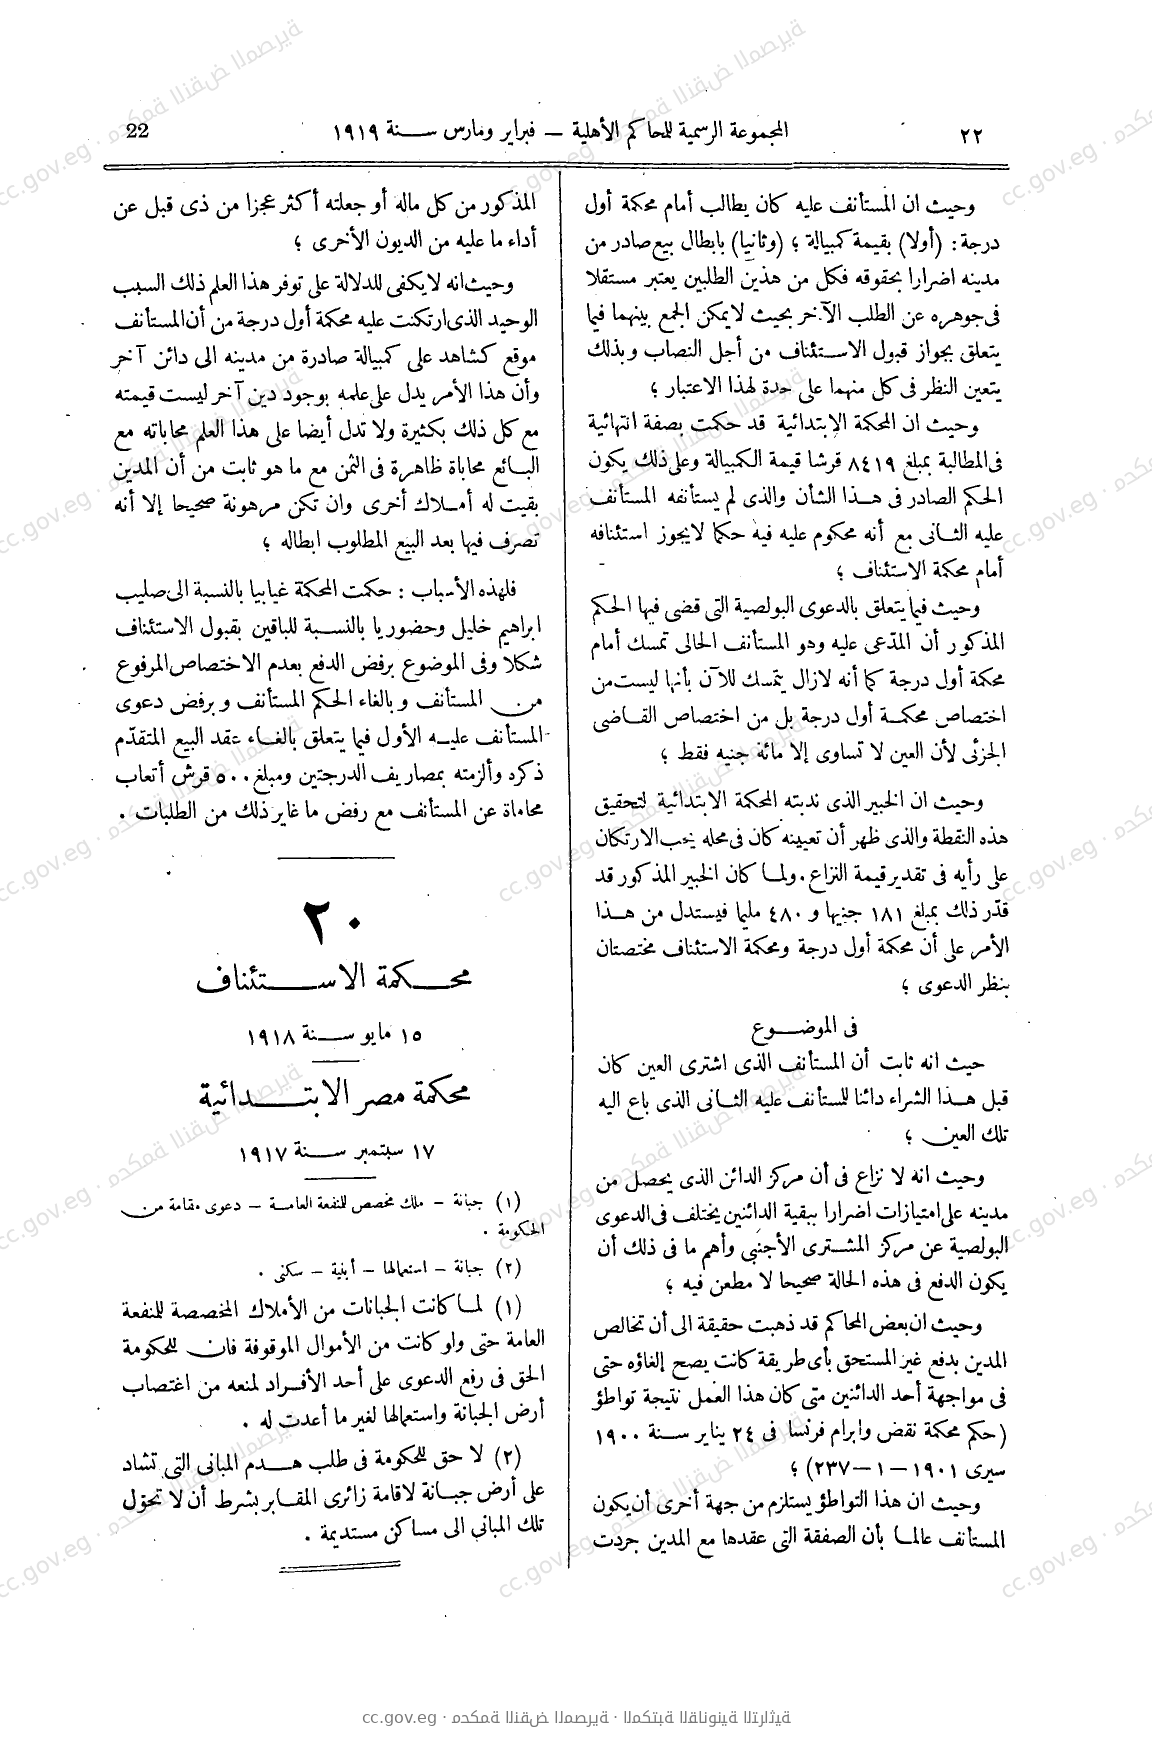 ٢٢
المجموعة الرسمية للمحاكم الأهلية — فبراير ومارس سنة ١٩١٩
22
وحيث ان المستأنف عليه كان يطالب أمام محكمة أول
درجة : (أولا) بقيمة كمبيالة ؛ (وثانيا) بابطال بيع صادر من
مدينه اضرارا بحقوقه فكل من هذين الطلبين يعتبر مستقلا
فى جوهره عن الطلب الآخر بحيث لا يمكن الجمع بينهما فيما
يتعلق بجواز قبول الاستئناف من أجل النصاب وبذلك
يتعين النظر فى كل منهما على حدة لهذا الاعتبار ؛
وحيث ان المحكمة الابتدائية قد حكمت بصفة انتهائية
فى المطالبة بمبلغ ٨٤١٩ قرشا قيمة الكمبيالة وعلى ذلك يكون
الحكم الصادر فى هذا الشأن والذى لم يستأنفه المستأنف
عليه الثانى مع أنه محكوم عليه فيه حكما لا يجوز استئنافه
أمام محكمة الاستئناف ؛
وحيث فيما يتعلق بالدعوى البولصية التى قضى فيها الحكم
المذكور أن المدّعى عليه وهو المستأنف الحالى تمسك أمام
محكمة أول درجة كما أنه لازال يتمسك للآن بأنها ليست من
اختصاص محكمة أول درجة بل من اختصاص القاضى
الجزئى لأن العين لا تساوى إلا مائة جنيه فقط ؛
وحيث ان الخبير الذى ندبته المحكمة الابتدائية لتحقيق
هذه النقطة والذى ظهر أن تعيينه كان فى محله يجب الارتكان
على رأيه فى تقدير قيمة النزاع . ولما كان الخبير المذكور قد
قدّر ذلك بمبلغ ١٨١ جنيها و ٤٨٠ مليما فيستدل من هذا
الأمر على أن محكمة أول درجة ومحكمة الاستئناف مختصتان
بنظر الدعوى ؛
فى الموضوع
حيث انه ثابت أن المستأنف الذى اشترى العين كان
قبل هذا الشراء دائنا للمستأنف عليه الثانى الذى باع اليه
تلك العين ؛
وحيث انه لا نزاع فى أن مركز الدائن الذى يحصل من
مدينه على امتيازات اضرارا ببقية الدائنين يختلف فى الدعوى
البولصية عن مركز المشترى الأجنبى وأهم ما فى ذلك أن
يكون الدفع فى هذه الحالة صحيحا لا مطعن فيه ؛
وحيث ان بعض المحاكم قد ذهبت حقيقة الى أن تخالص
المدين بدفع غير المستحق بأى طريقة كانت يصح إلغاؤه حتى
فى مواجهة أحد الدائنين متى كان هذا العمل نتيجة تواطؤ
(حكم محكمة نقض وابرام فرنسا فى ٢٤ يناير سنة ١٩٠٠
سيرى ١٩٠١ — ١ — ٢٣٧) ؛
وحيث ان هذا التواطؤ يستلزم من جهة أخرى أن يكون
المستأنف عالما بأن الصفقة التى عقدها مع المدين جردت
المذكور من كل ماله أو جعلته أكثر عجزا من ذى قبل عن
أداء ما عليه من الديون الأخرى ؛
وحيث انه لا يكفى للدلالة على توفر هذا العلم ذلك السبب
الوحيد الذى ارتكنت عليه محكمة أول درجة من أن المستأنف
موقع كشاهد على كمبيالة صادرة من مدينه الى دائن آخر
وأن هذا الأمر يدل على علمه بوجود دين آخر ليست قيمته
مع كل ذلك بكثيرة ولا تدل أيضا على هذا العلم محاباته مع
البائع محاباة ظاهرة فى الثمن مع ما هو ثابت من أن المدين
بقيت له أملاك أخرى وان تكن مرهونة صحيحا إلا أنه
تصرف فيها بعد البيع المطلوب ابطاله ؛
فلهذه الأسباب : حكمت المحكمة غيابيا بالنسبة الى صليب
ابراهيم خليل وحضوريا بالنسبة للباقين بقبول الاستئناف
شكلا وفى الموضوع برفض الدفع بعدم الاختصاص المرفوع
من المستأنف وبالغاء الحكم المستأنف وبرفض دعوى
المستأنف عليه الأول فيما يتعلق بالغاء عقد البيع المتقدّم
ذكره وألزمته بمصاريف الدرجتين ومبلغ ٥٠٠ قرش أتعاب
محاماة عن المستأنف مع رفض ما غاير ذلك من الطلبات .
٢٠
محكمة الاستئناف
١٥ مايو سنة ١٩١٨
محكمة مصر الابتدائية
١٧ سبتمبر سنة ١٩١٧
(١) جبانة – ملك مخصص للمنفعة العامة – دعوى مقامة من
الحكومة .
(٢) جبانة – استعمالها – أبنية – سكنى .
(١) لما كانت الجبانات من الأملاك المخصصة للمنفعة
العامة حتى ولو كانت من الأموال الموقوفة فان للحكومة
الحق فى رفع الدعوى على أحد الأفراد لمنعه من اغتصاب
أرض الجبانة واستعمالها لغير ما أعدت له .
(٢) لا حق للحكومة فى طلب هدم المبانى التى تشاد
على أرض جبانة لاقامة زائرى المقابر بشرط أن لا تحوّل
تلك المبانى الى مساكن مستديمة .
cc.gov.eg · محكمة النقض المصرية · المكتبة القانونية التراثية